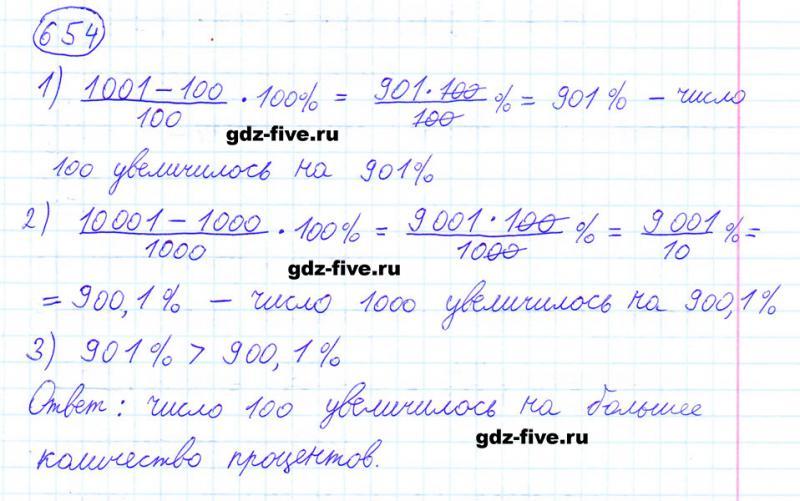 654
1) (1001 – 100)/100 · 100% = (901 · 100)/100 % = 901% – число
gdz-five.ru
100 увеличилось на 901%
2) (10001 – 1000)/1000 · 100% = (9001 · 100)/1000 % = 9001/10 % =
gdz-five.ru
= 900,1% – число 1000 увеличилось на 900,1%
3) 901% > 900,1%
Ответ: число 100 увеличилось на большее
gdz-five.ru
количество процентов.